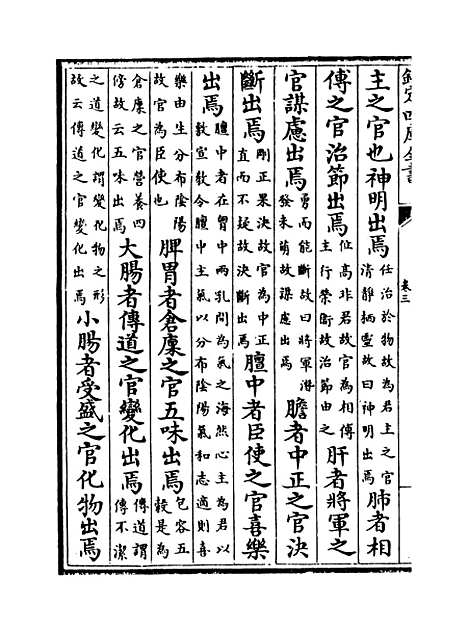 欽定四庫全書
卷三
主之官也神明出焉任治於物故為君主之官清靜栖靈故曰神明出焉肺者相
傅之官治節出焉位高非君故官為相傅主行榮衛故治節由之肝者將軍之
官謀慮出焉勇而能斷故曰將軍潛發未萌故謀慮出焉膽者中正之官決
斷出焉剛正果決故官為中正直而不疑故決斷出焉膻中者臣使之官喜樂
出焉膻中者在胷中兩乳間為氣之海然心主為君以敷宣教令膻中主氣以分布陰陽氣和志適則喜
樂由生分布陰陽故官為臣使也脾胃者倉廩之官五味出焉包容五穀是為
倉廩之官營養四傍故云五味出焉大腸者傳道之官變化出焉傳道謂傳不潔
之道變化謂變化物之形故云傳道之官變化出焉小腸者受盛之官化物出焉